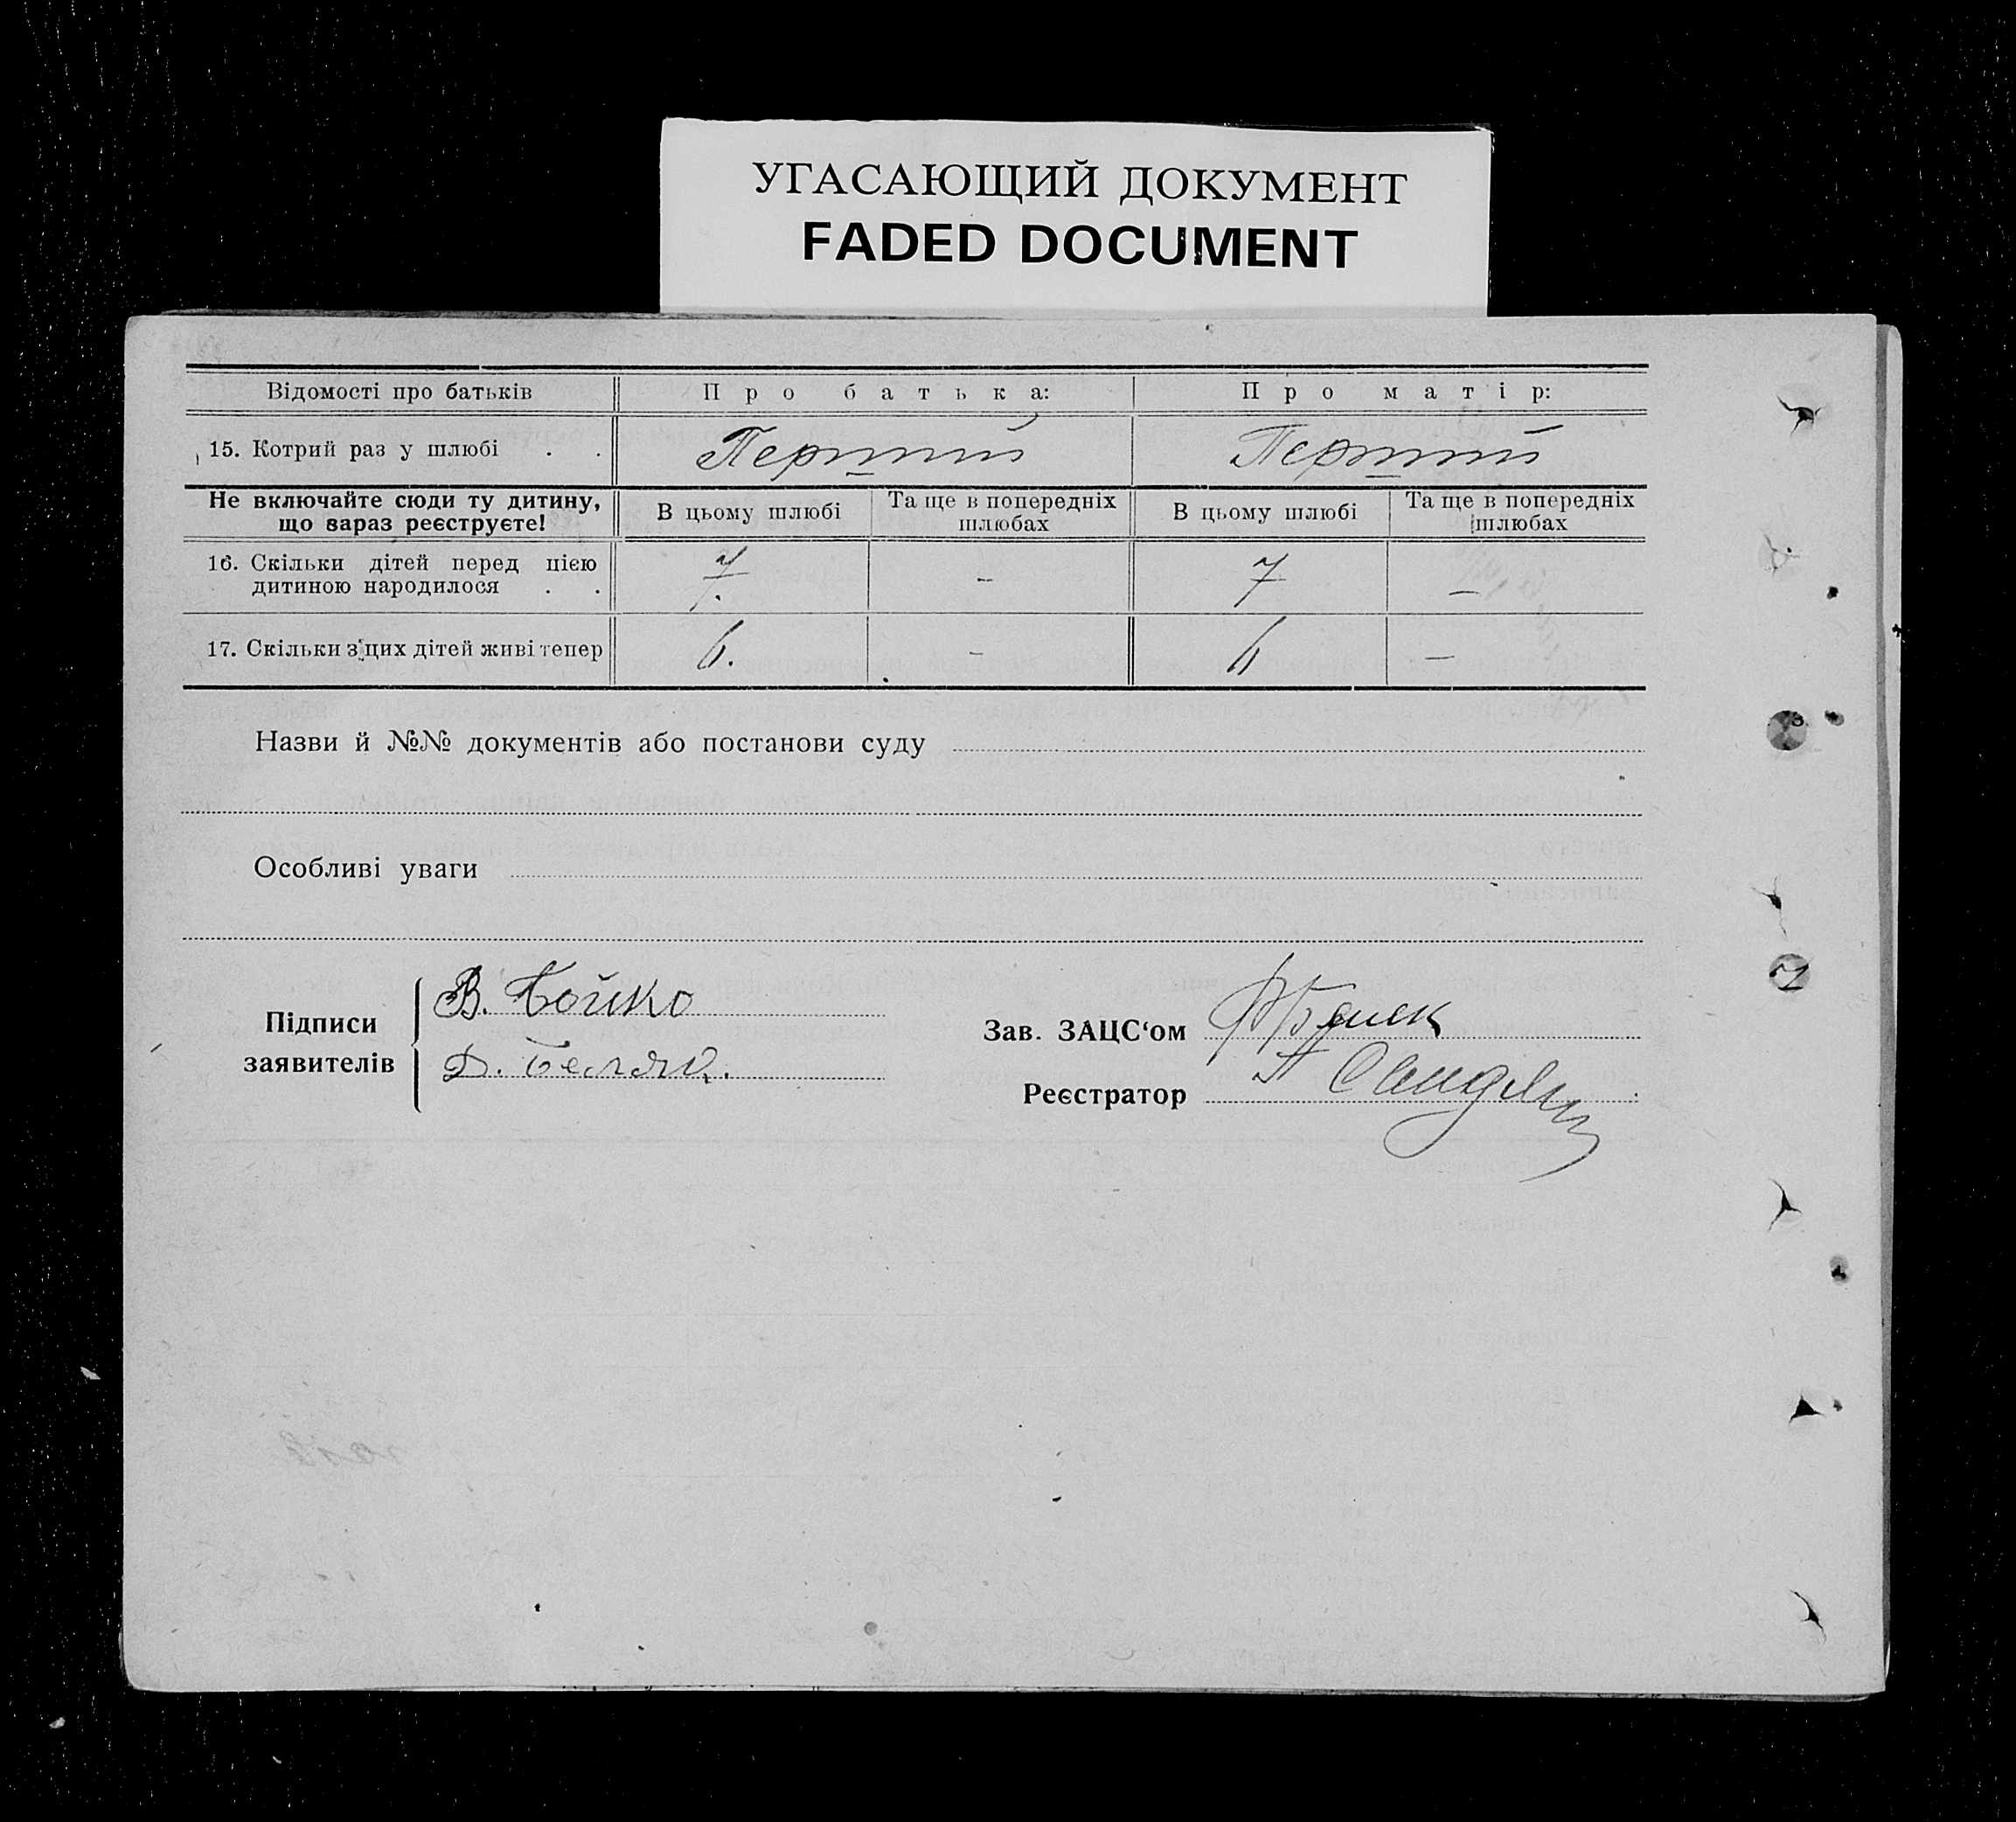 УГАСАЮЩИЙ ДОКУМЕНТ
FADED DOCUMENT
Відомості про батьків Про батька: Про матір:
15. Котрий раз у шлюбі . . Перший Перший
Не включайте сюди ту дитину, що вараз реєструєте! В цьому шлюбі Та ще в попередніх шлюбах В цьому шлюбі Та ще в попередніх шлюбах
16. Скільки дітей перед цією
дитиною народилося . . 7. – 7 –
17. Скільки з цих дітей живі тепер 6. – 6 –
Назви й №№ документів або постанови суду
Особливі уваги
Підписи
заявителів
В. Бойко
Зав. ЗАЦС‘ом
Реєстратор